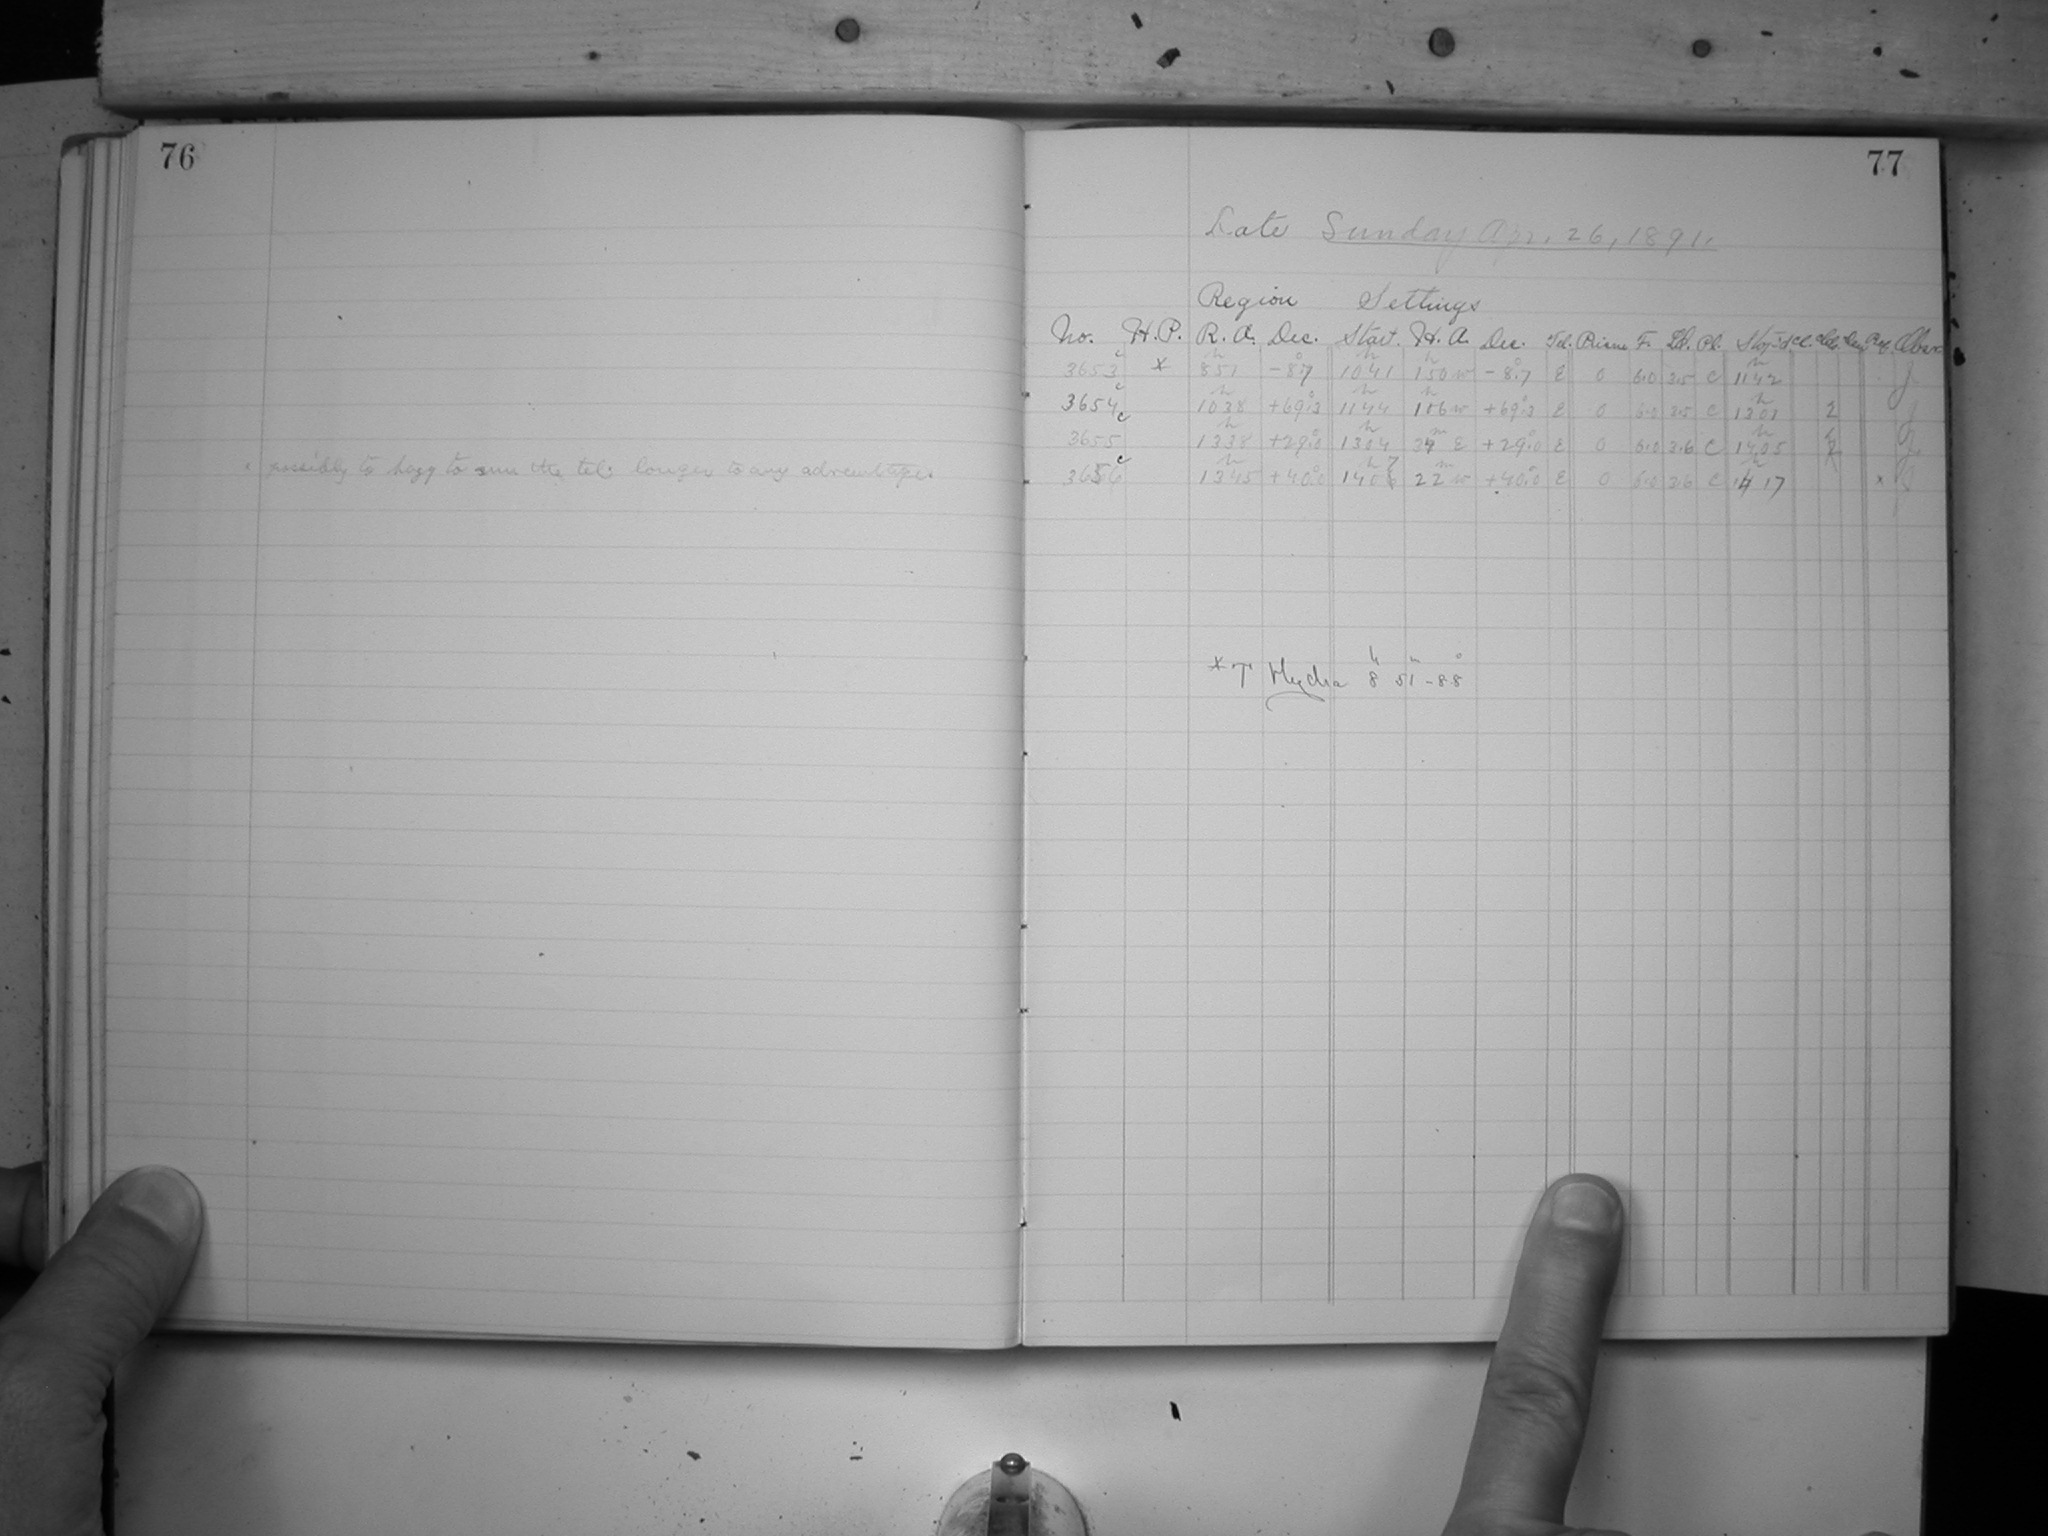 76
x possibly to hazy to run the tel. longer to any advantage.
77
Date Sunday Apr. 26, 1891.
Region Settings
No. H.P. R.A. Dec. Start. H.A. Dec. Tel. Prism F. Pl. Stop
3653 c x 8h51 -8°.7 10h41 1h50 w -8°.7 E 0 6.0 3.5 C 11h42 J
3654 c 10h38 +69°.3 11h44 1h06 w +69°.3 E 0 6.0 3.5 C 13h03 2 J
3655 c 13h38 +29°.0 13h04 34m E +29°.0 E 0 6.0 3.6 C 14h05 2 J
3656 c 13h45 +40°.0 14h07 22m w +40°.0 E 0 6.0 3.6 C 14h17 x J
x T Hydra 8h 51m -8°.8